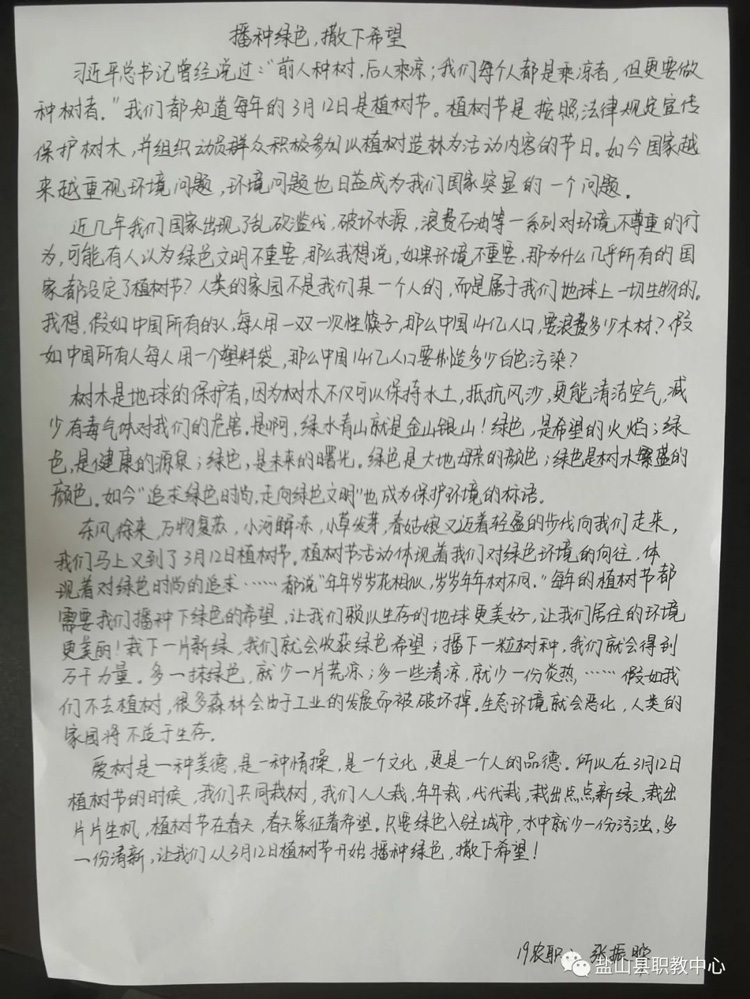 播种绿色,撒下希望
习近平总书记曾经说过:“前人种树,后人乘凉;我们每个人都是乘凉者,但更要做
种树者。”我们都知道每年的3月12日是植树节。植树节是按照法律规定宣传
保护树木,并组织动员群众积极参加以植树造林为活动内容的节日。如今国家越
来越重视环境问题,环境问题也日益成为我们国家突显的一个问题。
近几年我们国家出现了乱砍滥伐,破坏水源,浪费石油等一系列对环境不尊重的行
为,可能有人认为绿色文明不重要,那么我想说,如果环境不重要,那为什么几乎所有的国
家都设定了植树节?人类的家园不是我们某一个人的,而是属于我们地球上一切生物的。
我想,假如中国所有的人,每人用一双一次性筷子,那么中国14亿人口,要浪费多少木材?假
如中国所有人每人用一个塑料袋,那么中国14亿人口要制造多少白色污染?
树木是地球的保护者,因为树木不仅可以保持水土,抵抗风沙,更能清洁空气,减
少有毒气体对我们的危害。是啊,绿水青山就是金山银山!绿色,是希望的火焰;绿
色,是健康的源泉;绿色,是未来的曙光。绿色是大地母亲的颜色;绿色是树木繁盛的
颜色。如今“追求绿色时尚,走向绿色文明”也成为保护环境的标语。
东风徐来,万物复苏,小河解冻,小草发芽,春姑娘又迈着轻盈的步伐向我们走来,
我们马上又到了3月12日植树节。植树节活动体现着我们对绿色环境的向往,体
现着对绿色时尚的追求……都说“年年岁岁花相似,岁岁年年树不同。”每年的植树节都
需要我们播种下绿色的希望,让我们赖以生存的地球更美好,让我们居住的环境
更美丽!栽下一片新绿,我们就会收获绿色希望;播下一粒树种,我们就会得到
万千力量。多一抹绿色,就少一片荒凉;多一些清凉,就少一份炎热……假如我
们不去植树,很多森林会由于工业的发展而被破坏掉。生态环境就会恶化,人类的
家园将不适于生存。
爱树是一种美德,是一种情操,是一个文化,更是一个人的品德。所以在3月12日
植树节的时候,我们共同栽树,我们人人栽,年年栽,代代栽,栽出点点新绿,栽出
片片生机,植树节在春天,春天象征着希望。只要绿色入驻城市,水中就少一份污浊,多
一份清新,让我们从3月12日植树节开始播种绿色,撒下希望!
19农职 张振
盐山县职教中心